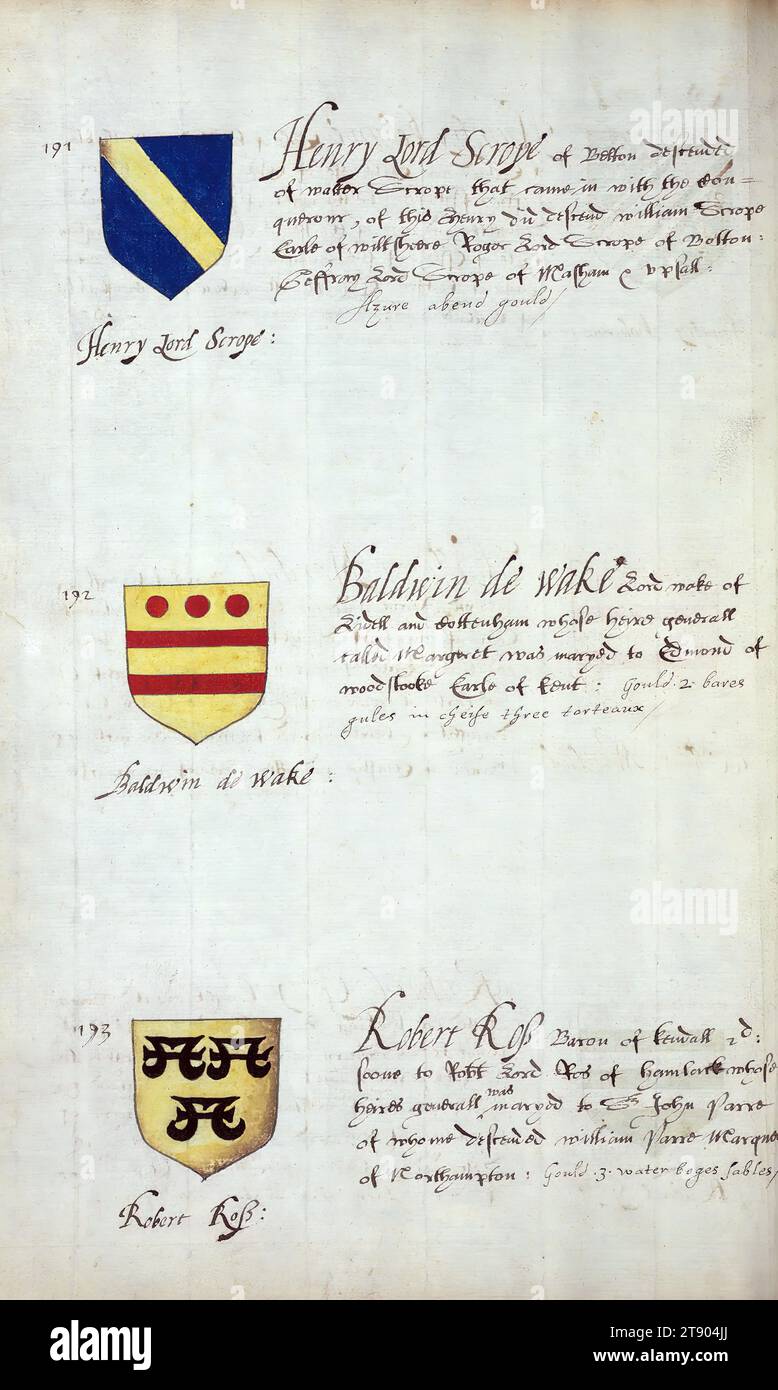 191
Henry Lord Scrope of Bolton descended
of walter Scrope that came in with the Con=
querour, of this Henry did descend william Scrope
Earle of wiltsheere Roger Lord Scrope of Bolton:
Geffray Lord Scrope of Masham & upsall:
Azure a bend gould/
Henry Lord Scrope:
192
Baldwin de wake Lord wake of
Lidell and Cottenham whose heire generall
called Margeret was maryed to Edmond of
woodstooke Earle of kent: Gould .2. bares
gules in cheife three torteaux/
Baldwin de wake:
193
Robert Roß Baron of kendall 2d:
soone to Robt Lord Ros of hamlack whose
heires generall was maryed to Sr John Parre
of whome descended william Parre Marque
of Northampton: Gould .3. water boges sables/
Robert Roß:
alamy
alamy
a
a
a
a
alamy
Image ID: 2T904JJ
www.alamy.com